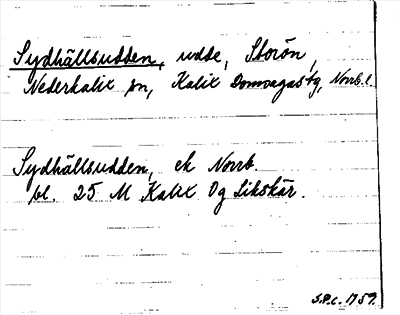 Sydhällsudden, udde, Storön,
Nederkalix sn, Kalix Domsagas tg, Norrb. l.
Sydhällsudden, ek Norrb.
bl. 25 M Kalix Og Likskär.
S.P.C. 1959.